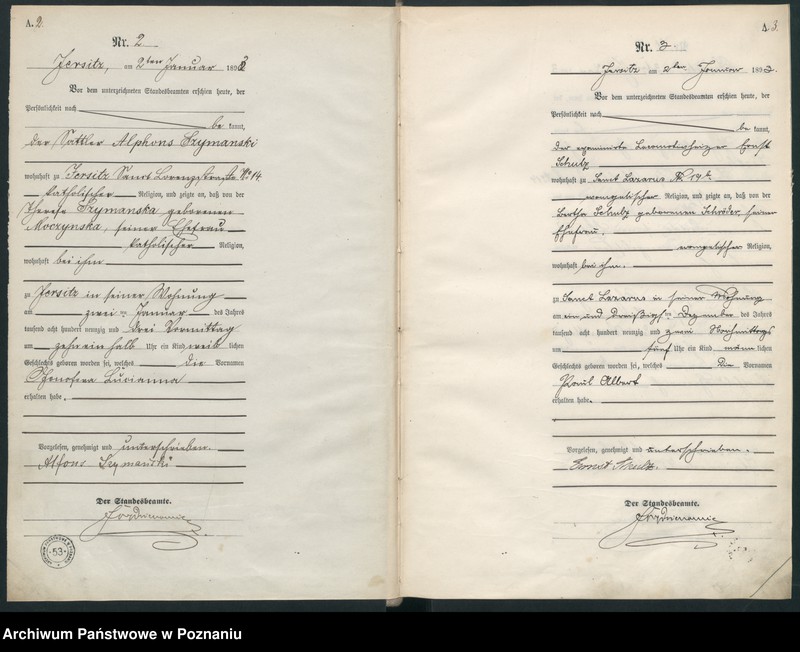 A. 2.
Nr. 2
Jersitz, am 2ten Januar 1893
Vor dem unterzeichneten Standesbeamten erschien heute, der
Persönlichkeit nach
be kannt,
der Sattler Alphons Szymanski
wohnhaft zu Jersitz Sanct Lorenzstraße No 14
katholischer Religion, und zeigte an, daß von der
Therese Szymanska geborenen
Moczynska, seiner Ehefrau
katholischer Religion,
wohnhaft bei ihm
zu Jersitz in seiner Wohnung
am zwei ten Januar des Jahres
tausend acht hundert neunzig und drei Vormittag
um zehn ein halb Uhr ein Kind weib lichen
Geschlechts geboren worden sei, welches die Vornamen
Lucianna
erhalten habe.
Vorgelesen, genehmigt und unterschrieben.
Alfons Szymański
Der Standesbeamte.
53
A. 3.
Nr. 3
Jersitz am 2ten Januar 1893.
Vor dem unterzeichneten Standesbeamten erschien heute, der
Persönlichkeit nach
be kannt,
der examinirte Locomotivheizer Ernst
Schulz
wohnhaft zu Sanct Lazarus No 19
evangelischer Religion, und zeigte an, daß von der
Bertha Schulz geborenen Schröder, seiner
Ehefrau.
evangelischer Religion,
wohnhaft bei ihm.
zu Sanct Lazarus in seiner Wohnung
am ein und dreißigsten Dezember des Jahres
tausend acht hundert neunzig und zwei Nachmittags
um fünf Uhr ein Kind männ lichen
Geschlechts geboren worden sei, welches die Vornamen
Paul Albert
erhalten habe.
Vorgelesen, genehmigt und unterschrieben.
Ernst Schulz.
Der Standesbeamte.
Archiwum Państwowe w Poznaniu